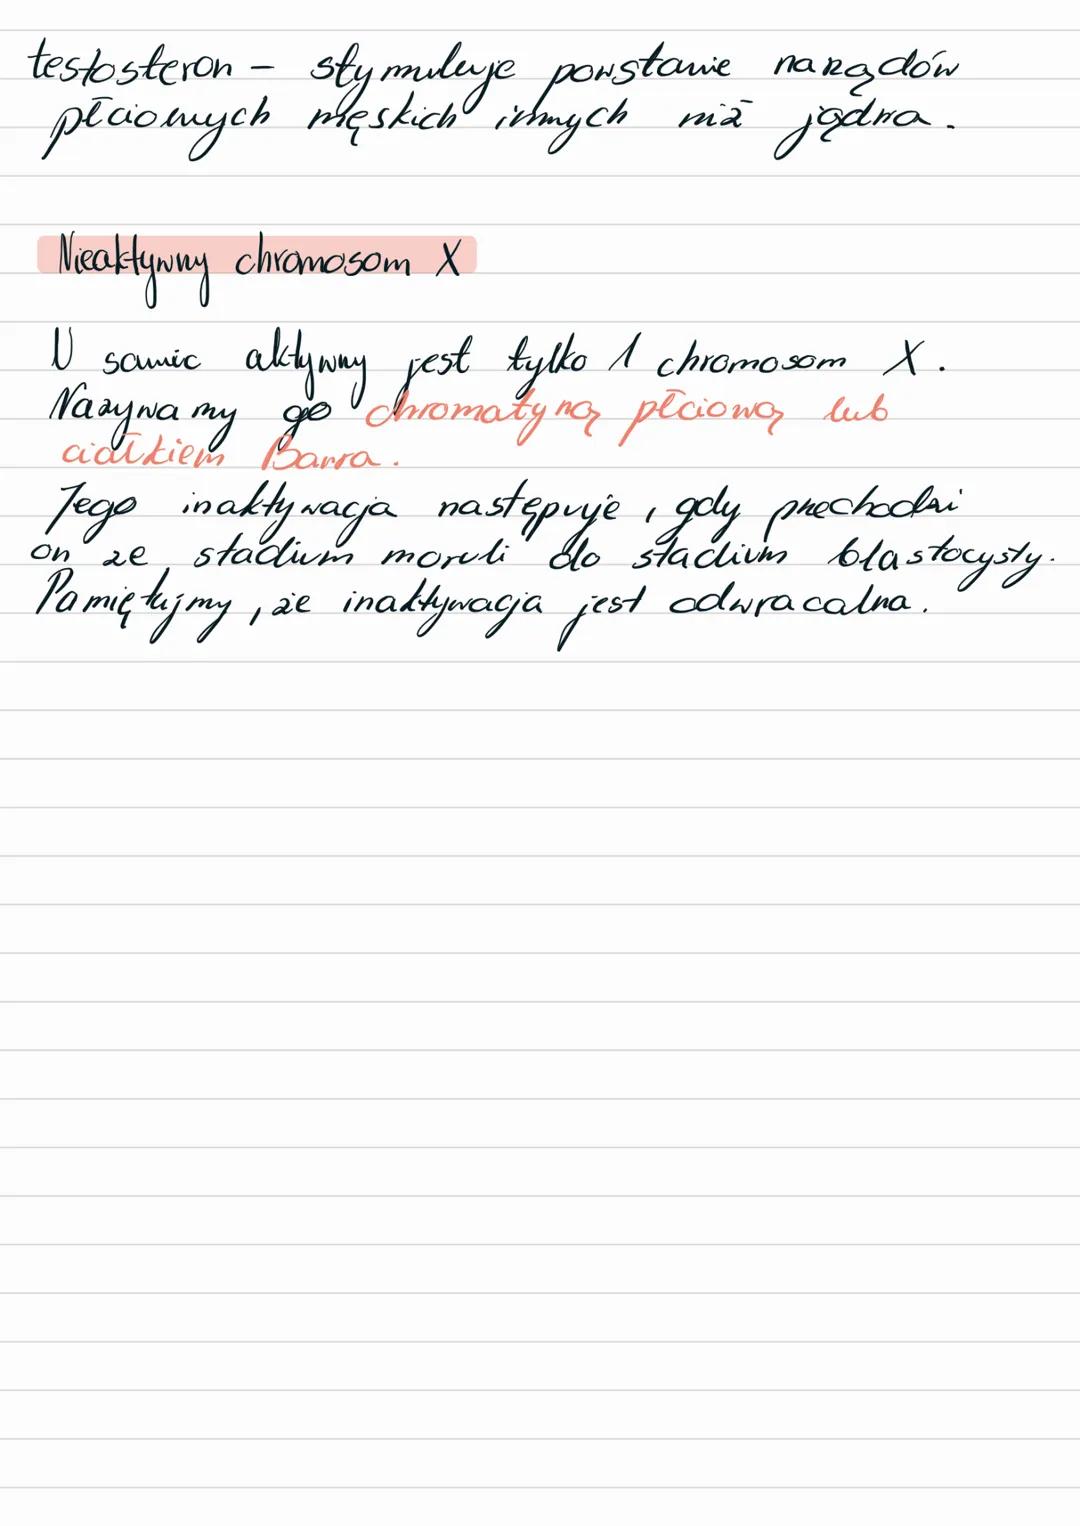 testosteron – stymuluje powstanie narządów
płciowych męskich innych niż jądra.
Nieaktywny chromosom X
U samic aktywny jest tylko 1 chromosom X.
Nazywamy go chromatyną płciową lub
ciałkiem Barra.
Jego inaktywacja następuje, gdy przechodzi
on ze stadium moruli do stadium blastocysty.
Pamiętajmy, że inaktywacja jest odwracalna.